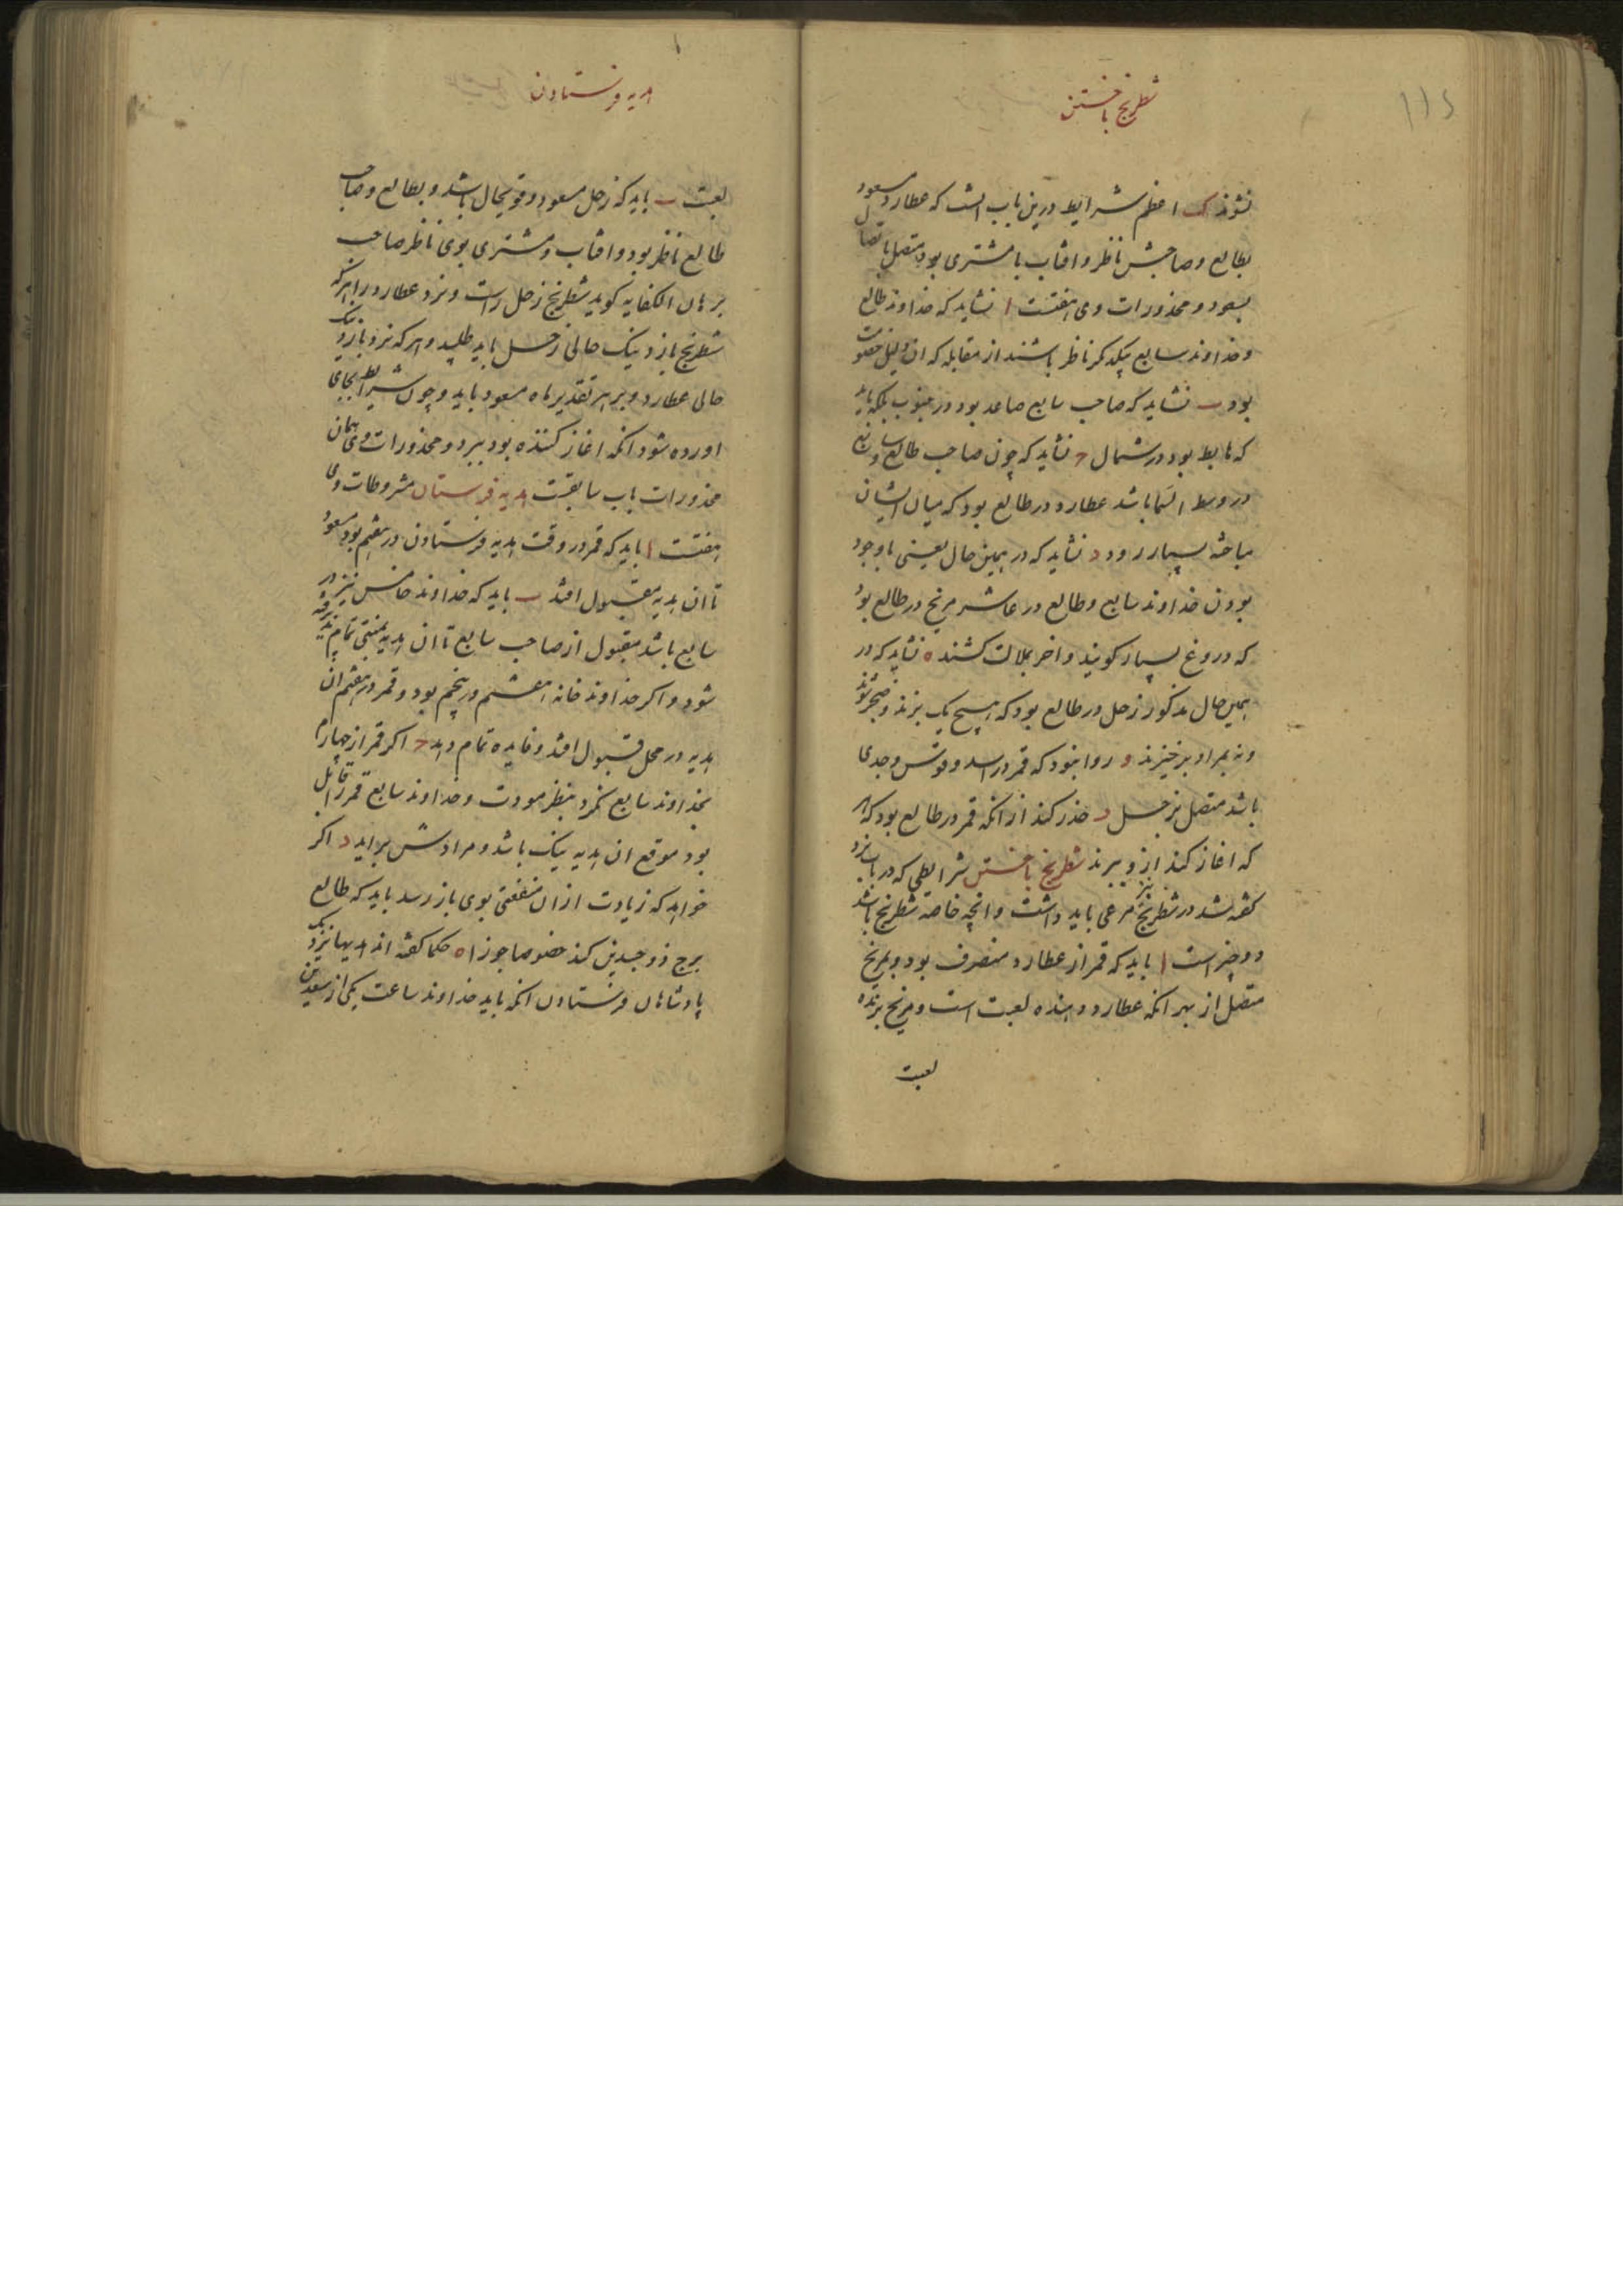 ۱۱۵
شطرنج باختن
نشوند ک اعظم شرایط درین باب انست که عطارد مسعود
بطالع و صاحبش ناظر و افتاب با مشتری بود متصل باتصال
بسعود و محذورات وی هفتست ا نشاید که خداوند طالع
و خداوند سابع بیکدیکر ناظر باشند از مقابله که ان دلیل خصومت
بود ب نشاید که صاحب سابع صاعد بود در جنوب بلکه باید
که هابط بود در شمال ج نشاید که چون صاحب طالع و سابع
در وسط السما باشد عطارد در طالع بود که میان ایشان
مباحثه بسیار رود د نشاید که در همین حال یعنی باوجود
بودن خداوند سابع و طالع در عاشر مریخ در طالع بود
که دروغ بسیار کویند و اخر بملالت کشند ه نشاید که در
همین حال مذکور زحل در طالع بود که هیچ یک نبرند و ضجر شوند
و نه بمراد برخیزند و روا نبود که قمر در اسد و قوس و جدی
باشد متصل بزحل د حذر کند از انکه قمر در طالع بود که هر
که اغاز کند ازو ببرند شطرنج باختن شرایطی که در باب نرد
کفته شد در شطرنج نیز مرعی باید داشت و انچه خاصه شطرنج باشد
دو چیز است ا باید که قمر از عطارد منصرف بود و بمریخ
متصل از بهر انکه عطارد دهنده لعبت است و مریخ برنده
لعبت
هدیه فرستادن
لعبت ب باید که زحل مسعود و قویحال باشد و بطالع و صاحب
طالع ناظر بود و افتاب و مشتری بوی ناظر صاحب
برهان الکفایه کوید شطرنج زحل راست و نرد عطارد را هرکه
شطرنج بازد نیک حالی زحل باید طلبید و هرکه نرد بازد نیک
حالی عطارد و بر هر تقدیر ماه مسعود باید و چون شرایط بجای
اورده شود انکه اغاز کننده بود ببرد و محذورات وی همان
محذورات باب سابقست هدیه فرستان مشروطات وی
هفتست ا باید که قمر در وقت هدیه فرستادن در هفتم بود مسعود
تا ان هدیه مقبول افتد ب باید که خداوند خامس نیز در
سابع باشد مقبول از صاحب سابع تا ان هدیه بمنتی تمام پذیرفته
شود و اکر خداوند خانه هشتم در پنجم بود و قمر در هفتم ان
هدیه در محل قبول افتد و فایده تمام دهد ج اکر قمر از چهارم
بخداوند سابع نکرد بنظر مودت و خداوند سابع قمر را قابل
بود موقع ان هدیه نیک باشد و مرادش براید د اکر
خواهد که زیادت از ان منفعتی بوی باز رسد باید که طالع
برج ذوجسدین کند خصوصا جوزا ه حکما کفته اند هدیها نزدیک
پادشاهان فرستادن انکه باید خداوند ساعت یکی از سعدین